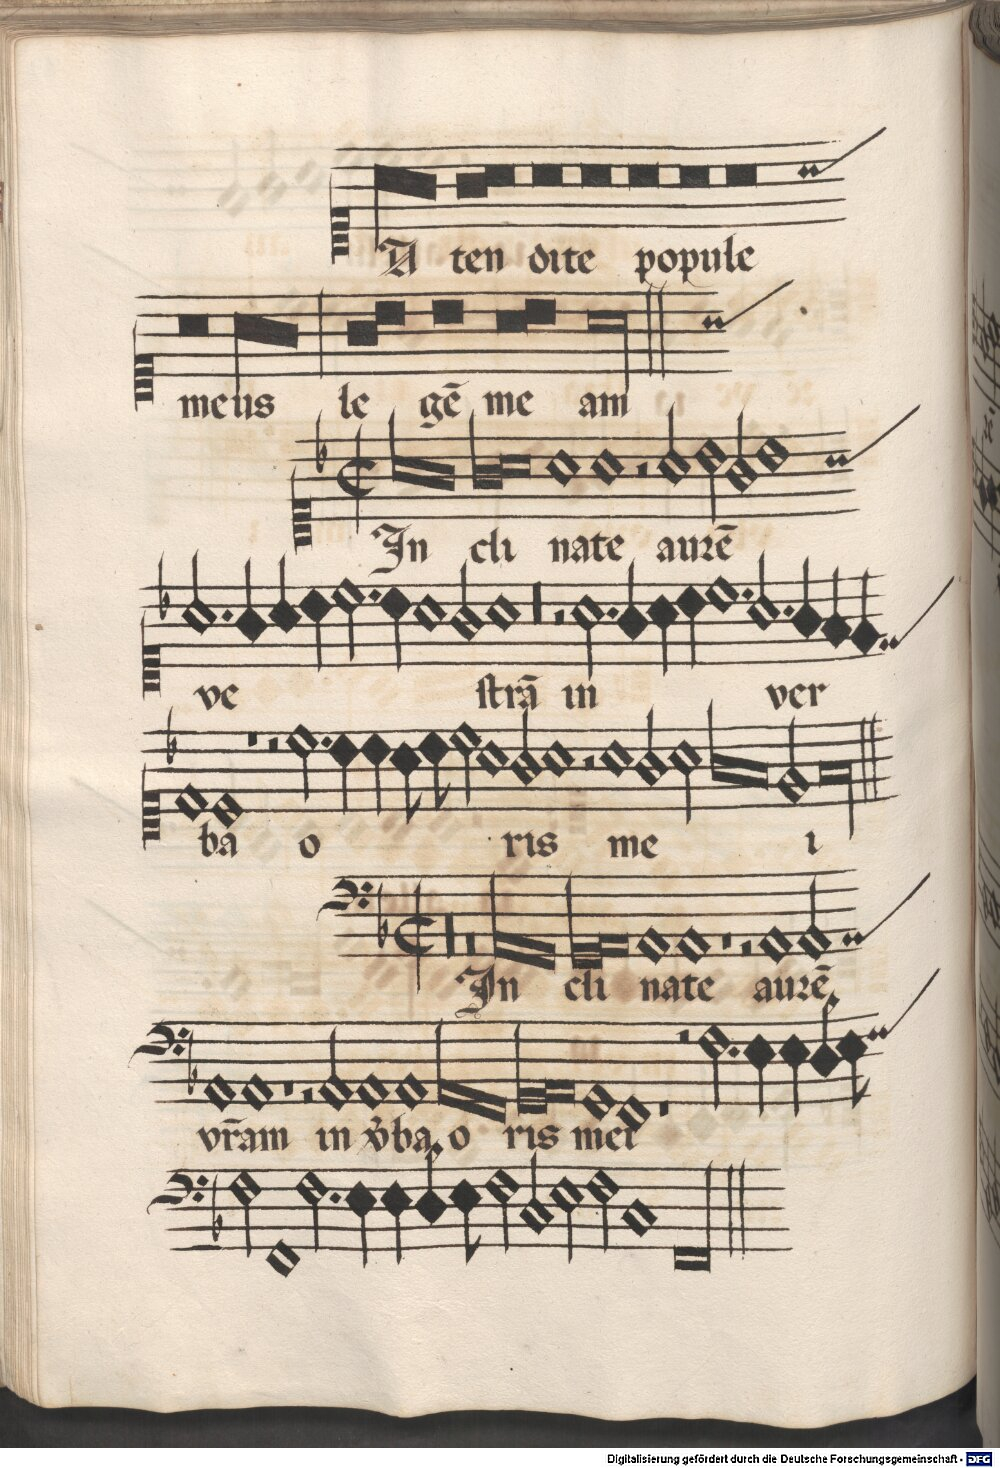 A ten dite popule
meus le gē me am
In cli nate aurē
ve strā in ver
ba o ris me i
In cli nate aurē
vr̄am in v̄ba o ris mei
Digitalisierung gefördert durch die Deutsche Forschungsgemeinschaft - DFG